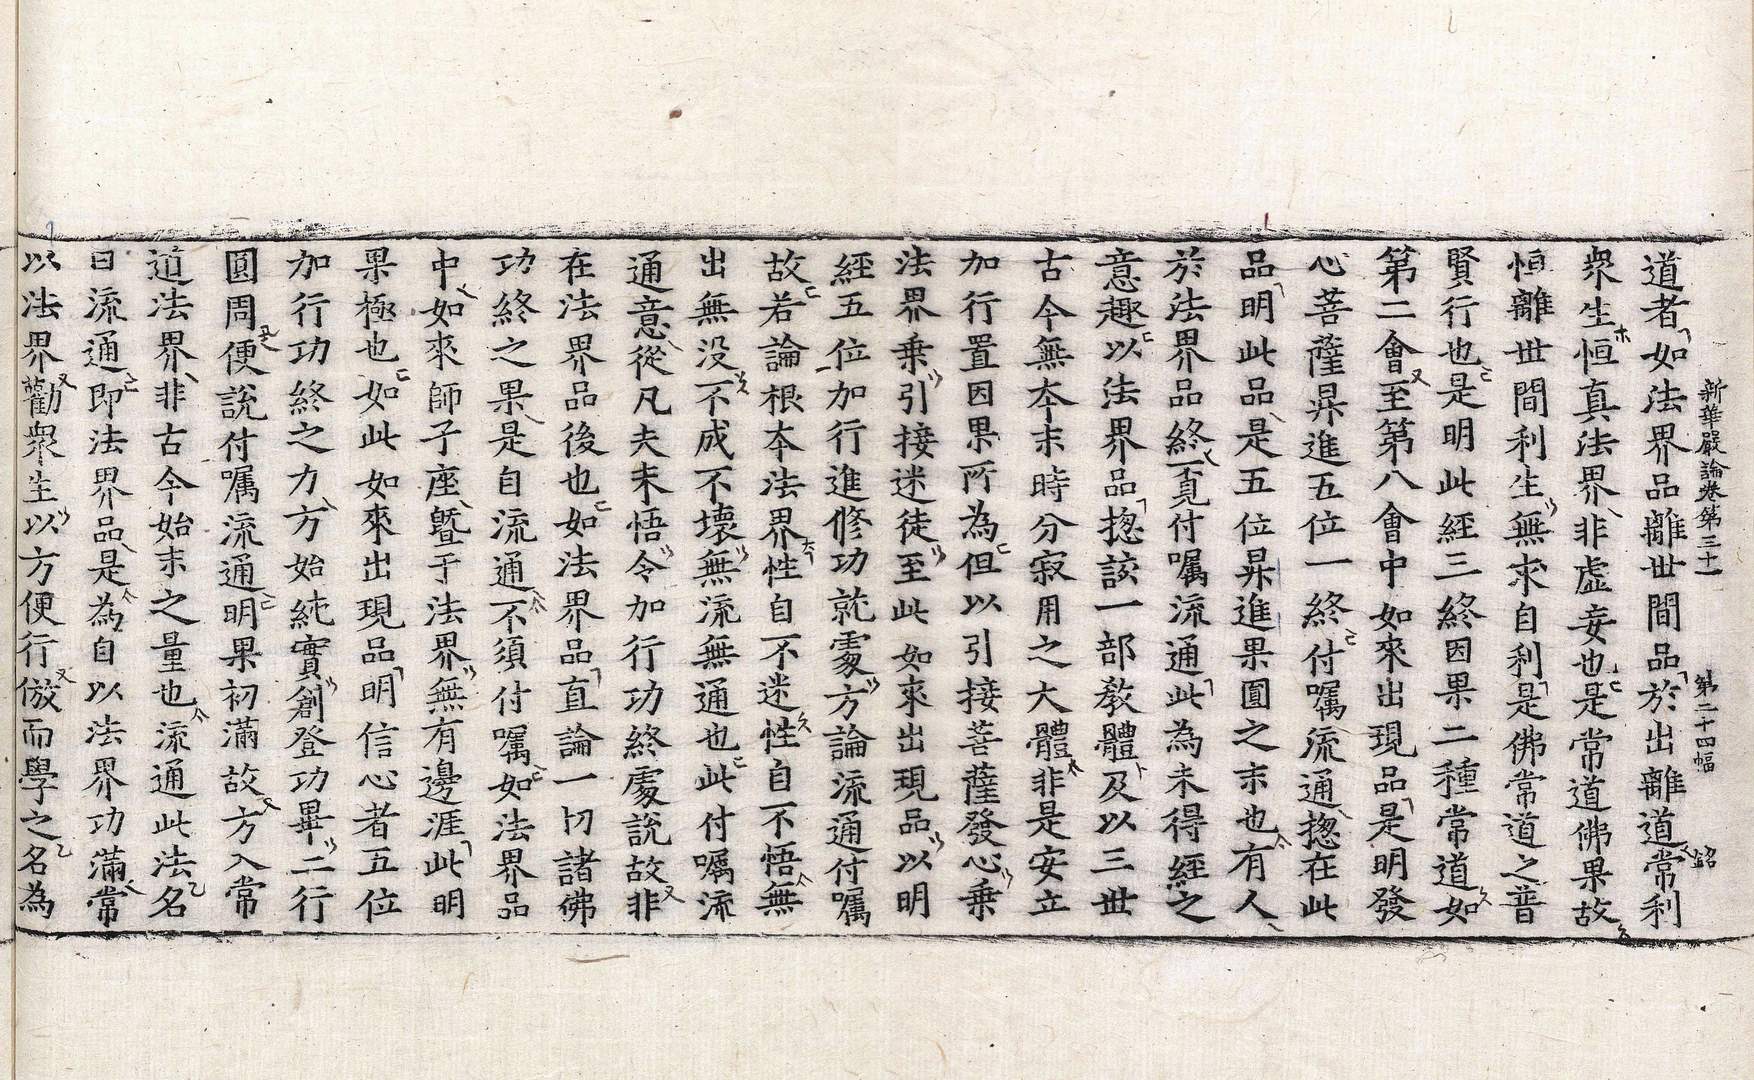 新華嚴論卷第三十一　第二十四幅　銘
道者如法界品離世間品於出離道常利
衆生恒真法界非虛妄也是常道佛果故
恒離世間利生無求自利是佛常道之普
賢行也是明此經三終因果二種常道如
第二會至第八會中如來出現品是明發
心菩薩昇進五位一終付囑流通揔在此
品明此品是五位昇進果圓之末也有人
於法界品終覓付囑流通此為未得經之
意趣以法界品揔該一部教體及以三世
古今無夲末時分寂用之大體非是安立
加行置因果所為但以引接菩薩發心乗
法界乗引接迷徒至此如來出現品以明
經五位加行進修功就處方論流通付囑
故若論根夲法界性自不迷性自不悟無
出無没不成不壞無流無通也此付囑流
通意從凡夫未悟令加行功終處說故非
在法界品後也如法界品直論一切諸佛
功終之果是自流通不須付囑如法界品
中如來師子座曁于法界無有邊涯此明
果極也如此如來出現品明信心者五位
加行功終之力方始純實創登功畢二行
圓周便說付囑流通明果初滿故方入常
道法界非古今始末之量也流通此法名
曰流通即法界品是為自以法界功滿常
以法界勸衆生以方便行倣而學之名為